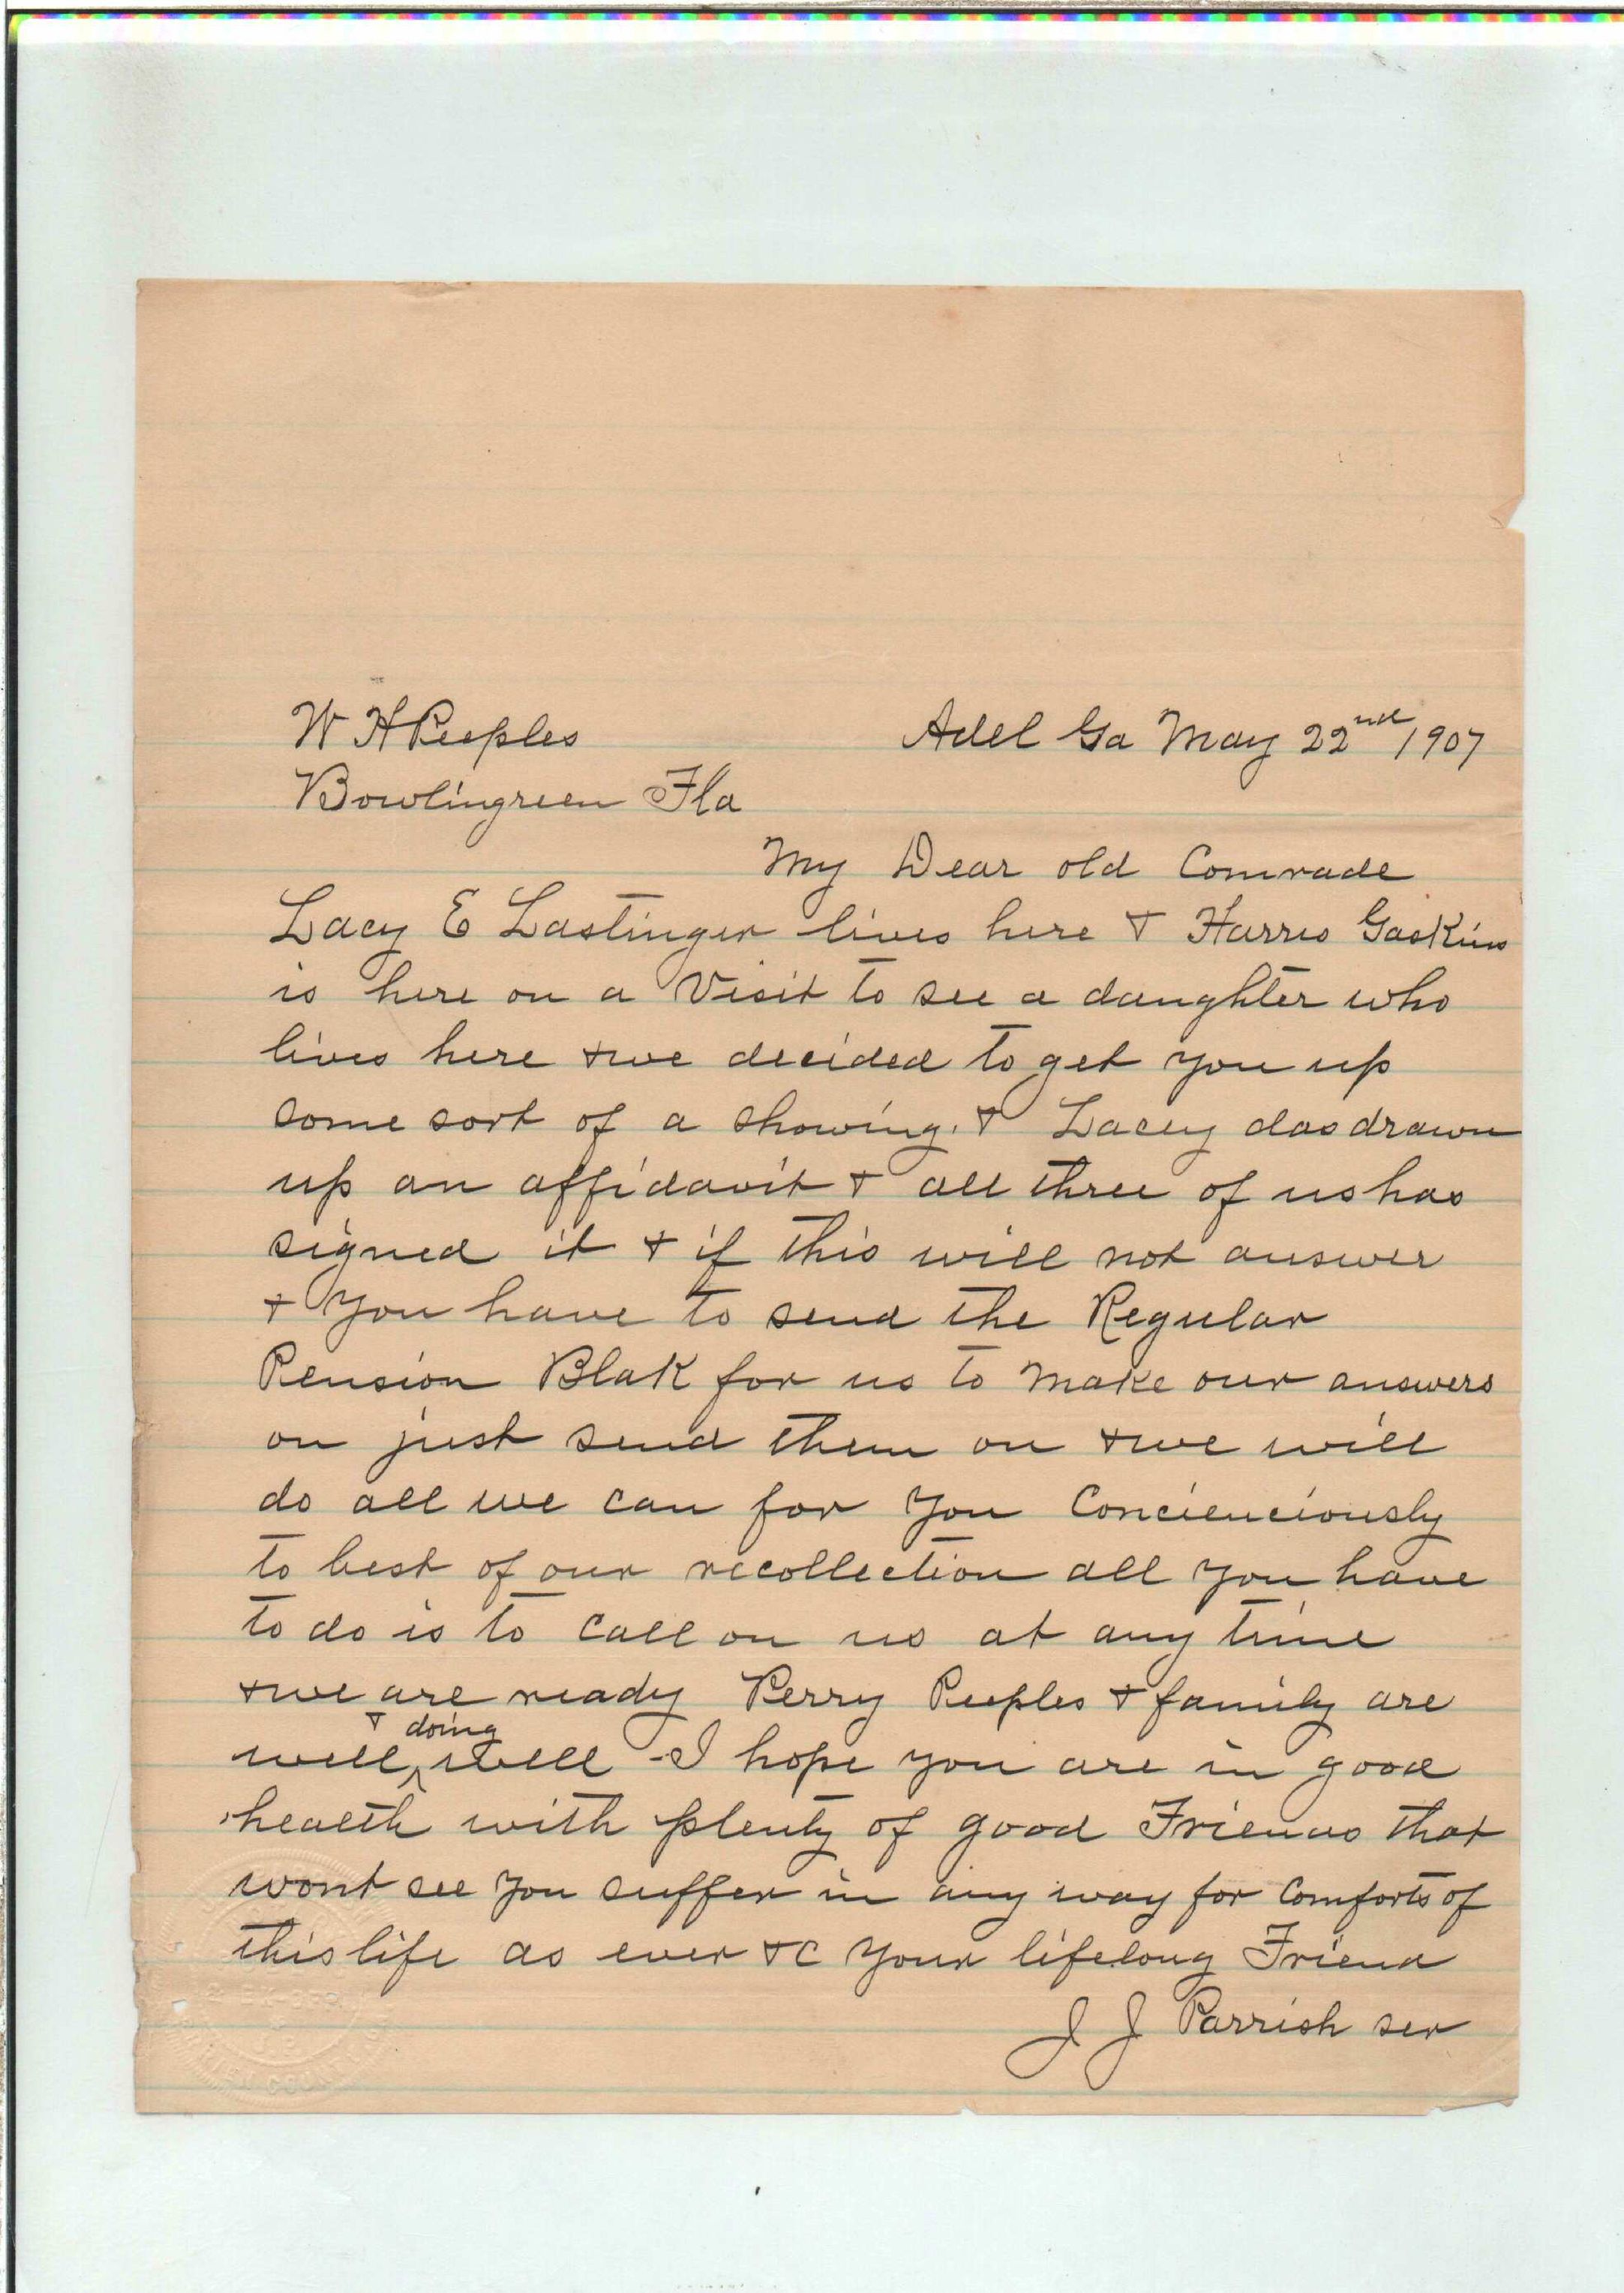 W H Peeples
Adel Ga May 22nd/1907
Bowlingreen Fla
My Dear old Comrade
Lacy E Lastinger lives here & Harris Gaskins
is here on a Visit to see a daughter who
lives here & we decided to get you up
some sort of a showing. & Lacey das drawn
up an affidavit & all three of us has
signed it & if this will not answer
& you have to send the Regular
Pension Blak for us to make our answers
on just send them on & we will
do all we can for you Concienciously
to best of our recollection all you have
to do is to call on us at any time
& we are ready Perry Peeples & family are
& doing
well ^ well - I hope you are in good
health with plenty of good Friends that
wont see you suffer in any way for Comforts of
this life as ever &C your lifelong Friend
J J Parrish ser